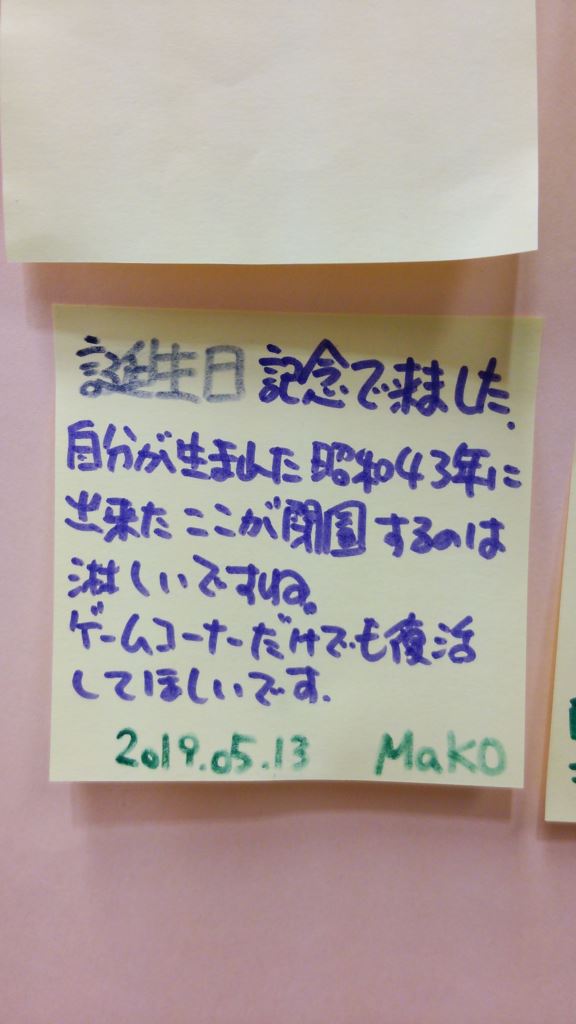 誕生日記念で来ました.
自分が生まれた昭和43年に
出来たここが閉園するのは
淋しいですね。
ゲームコーナーだけでも復活
してほしいです.
2019.05.13 MaKO